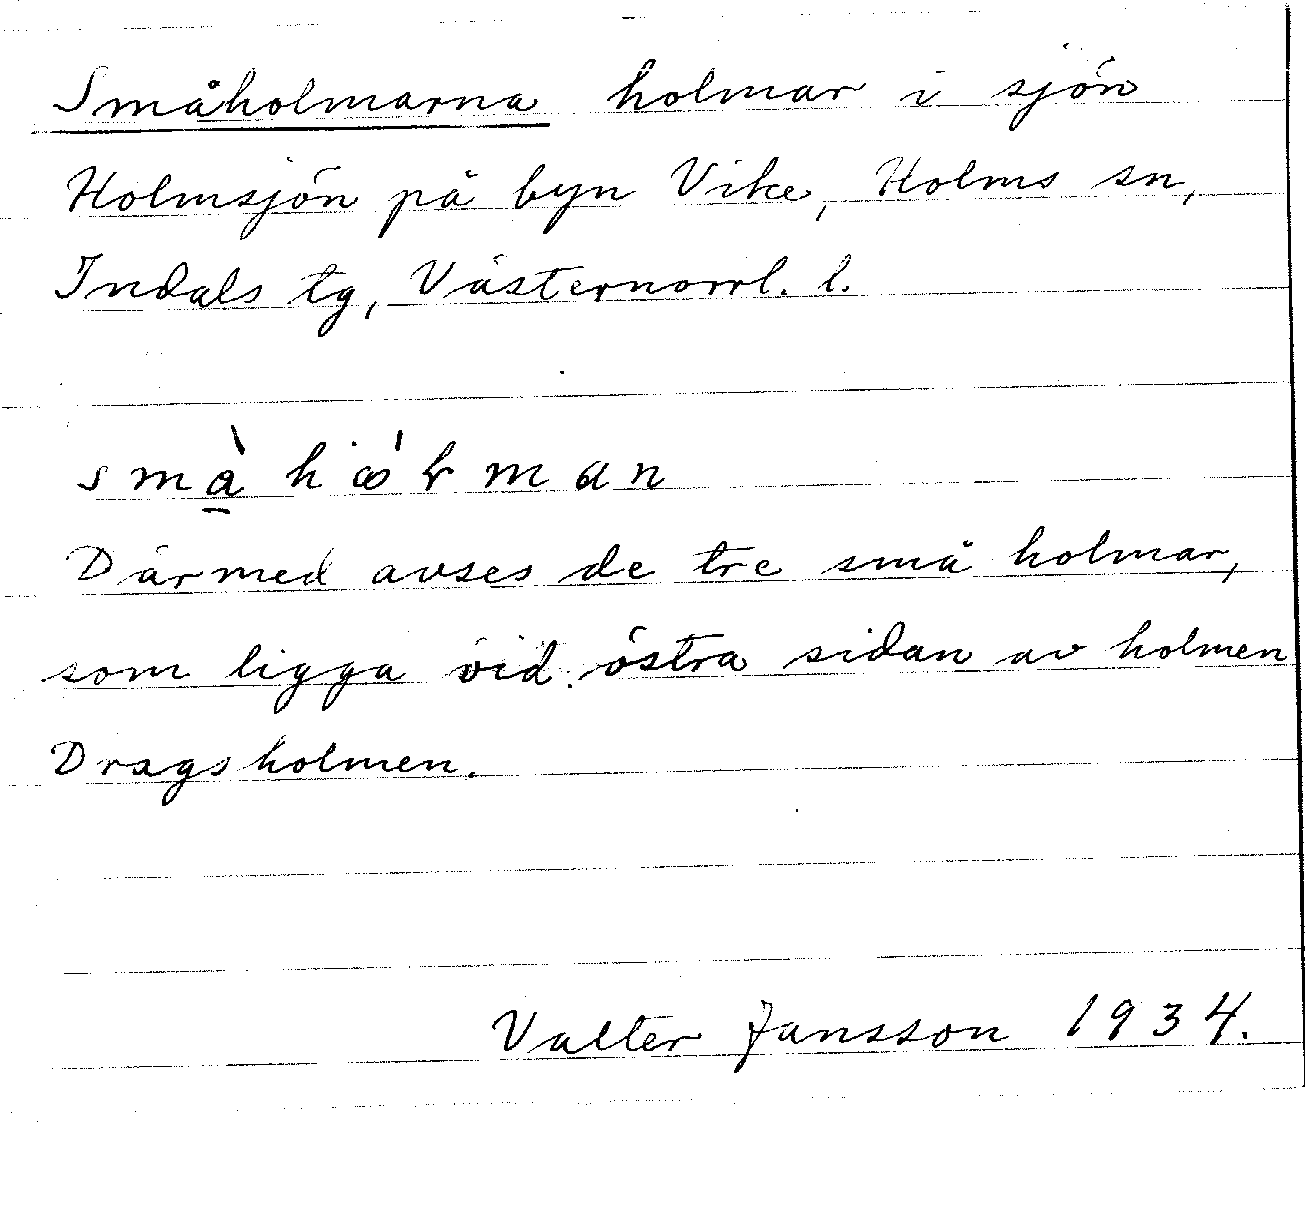 Småholmarna holmar i sjön
Holmsjön på byn Vike, Holms sn,
Indals tg, Västernorrl. l.
Därmed avses de tre små holmar,
som ligga vid östra sidan av holmen
Dragsholmen.
Valter Jansson 1934.